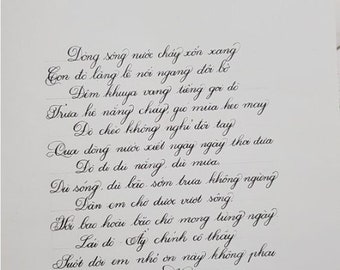 Dòng sông nước chảy xốn xang
Con đò lẳng lẽ nối ngang đôi bờ
Đêm khuya vang tiếng gọi đò
Trưa hè nắng cháy gió mùa heo may
Đò chèo không nghỉ đôi tay
Qua dòng nước xiết ngày ngày thoi đưa
Đò đi dù nắng dù mưa
Dù sóng dù bão sớm trưa không ngừng
Dẫn em chở được vượt sông
Với bao hoài bão chờ mong từng ngày
Lái đò Ấy chính cô thầy
Suốt đời em nhớ ơn này không phai